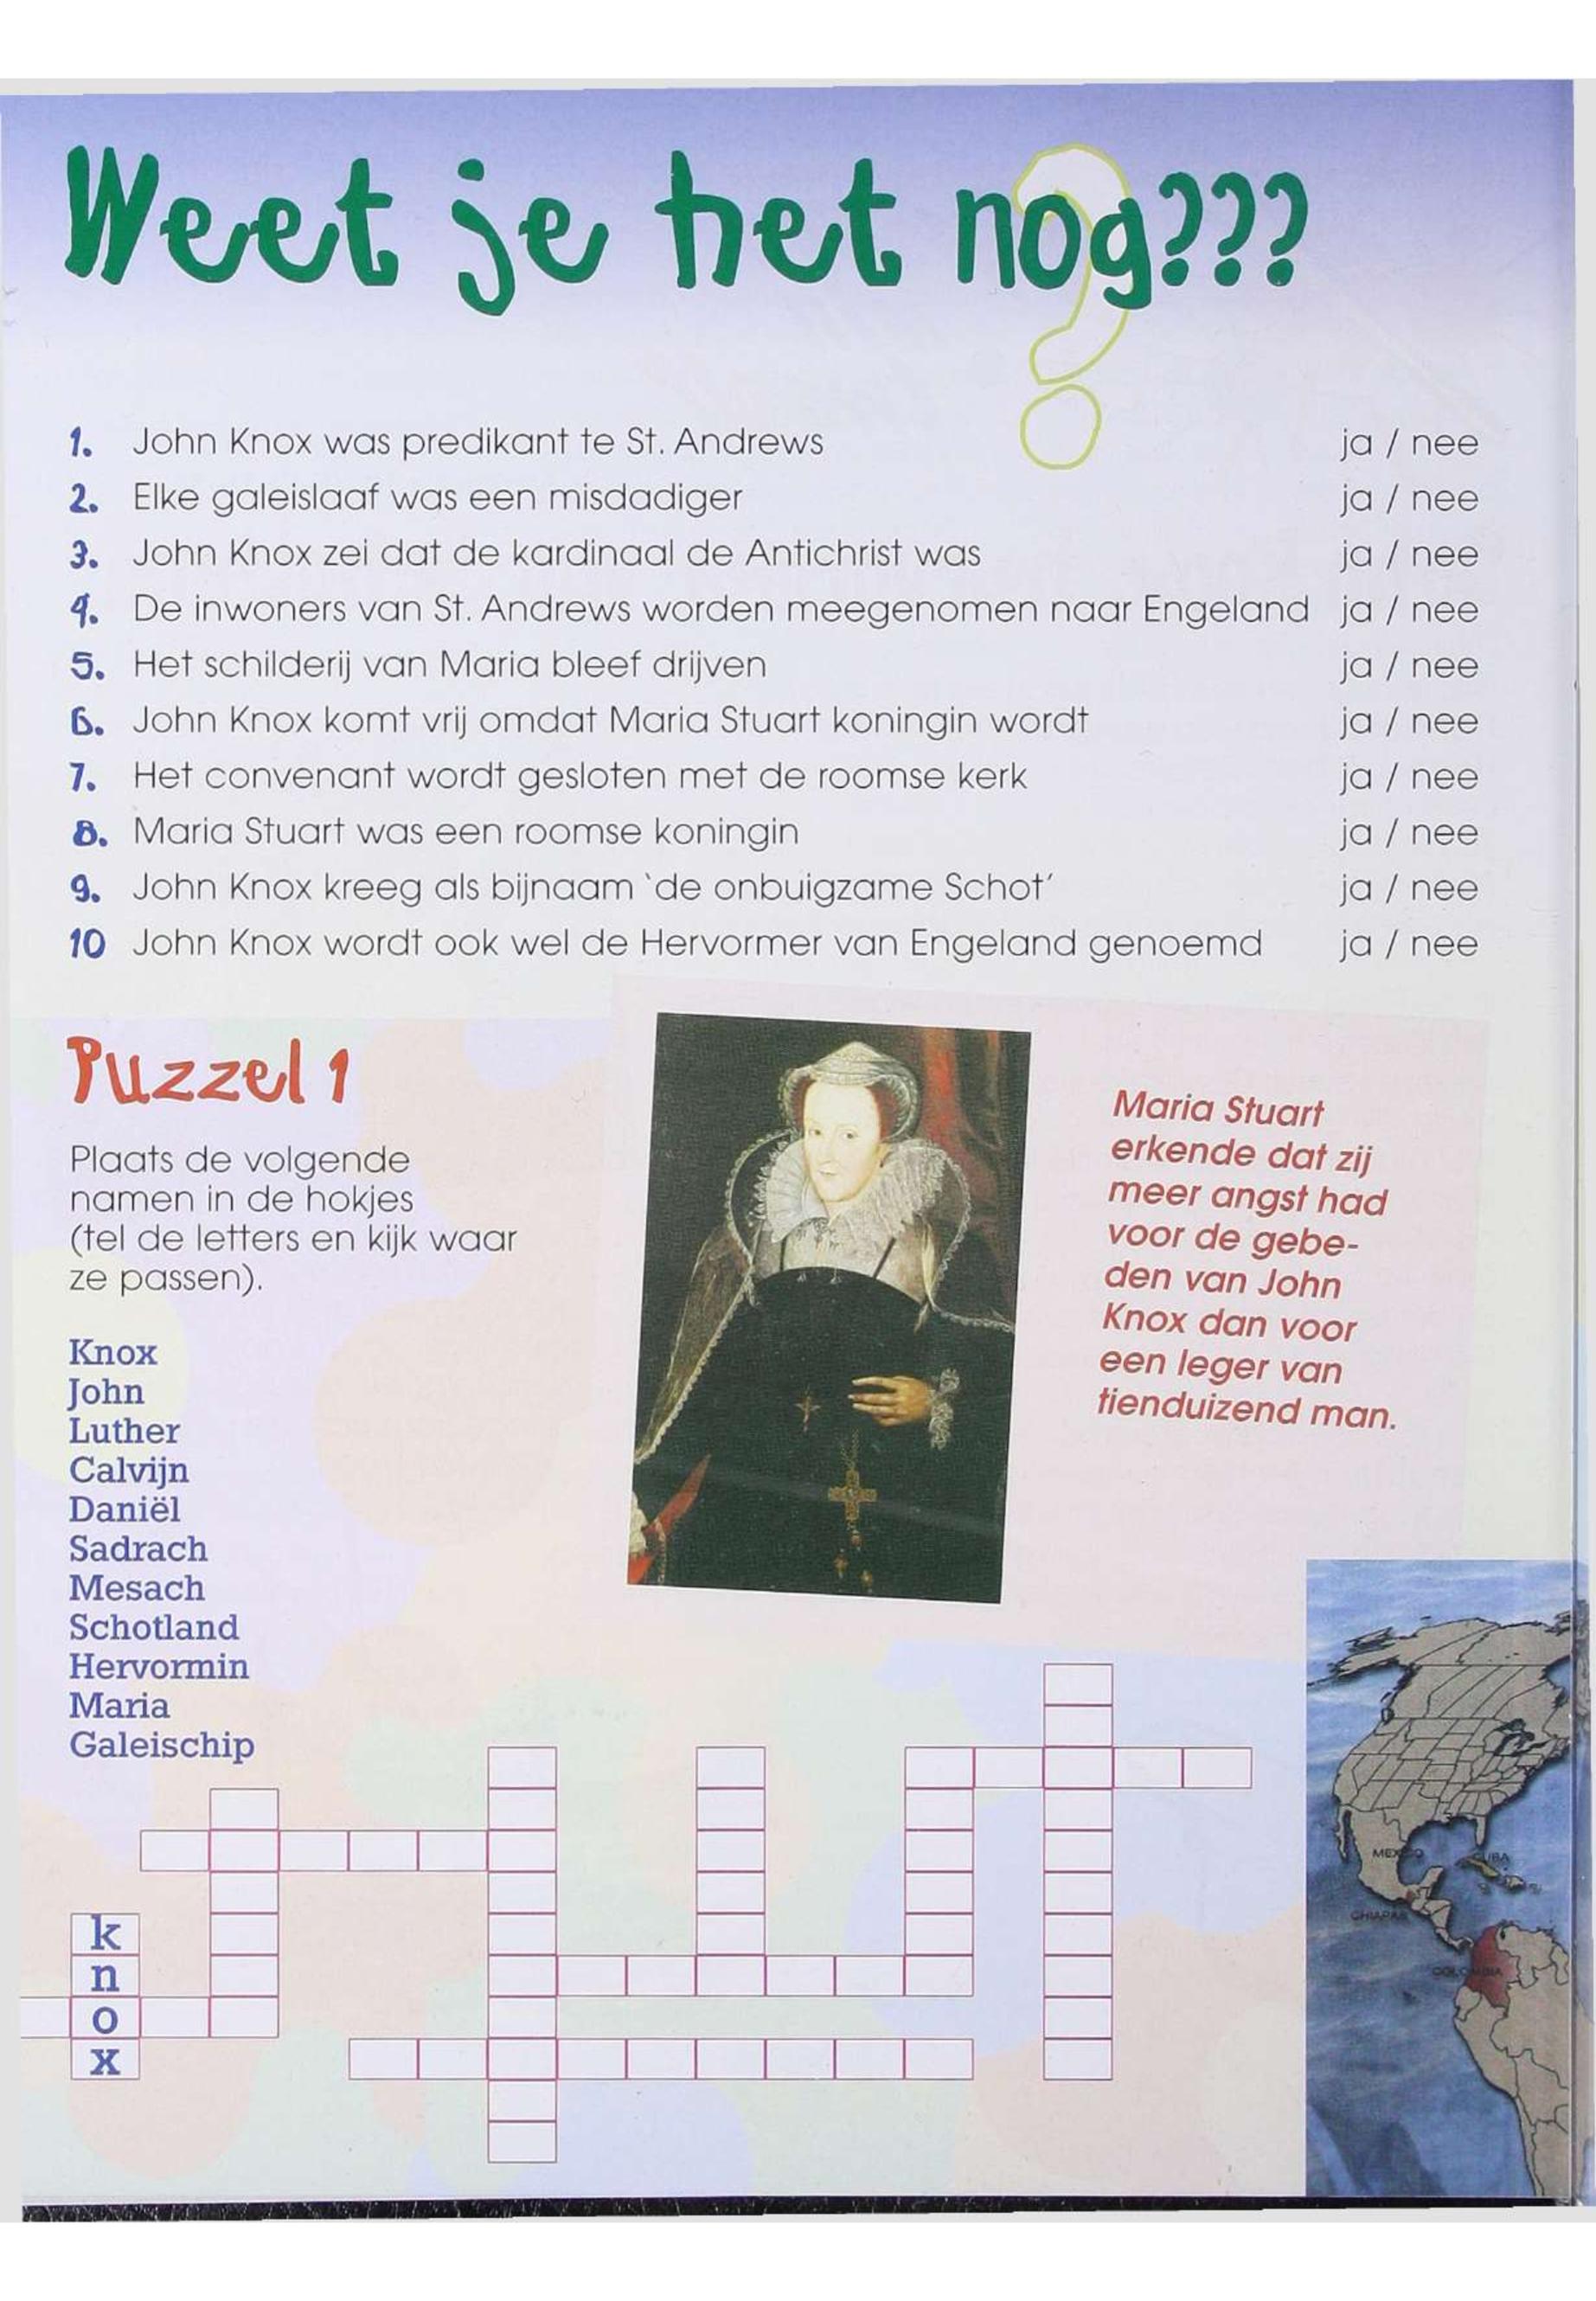 Weet je het nog???
1. John Knox was predikant te St. Andrews ja / nee
2. Elke galeislaaf was een misdadiger ja / nee
3. John Knox zei dat de kardinaal de Antichrist was ja / nee
4. De inwoners van St. Andrews worden meegenomen naar Engeland ja / nee
5. Het schilderij van Maria bleef drijven ja / nee
6. John Knox komt vrij omdat Maria Stuart koningin wordt ja / nee
7. Het convenant wordt gesloten met de roomse kerk ja / nee
8. Maria Stuart was een roomse koningin ja / nee
9. John Knox kreeg als bijnaam ‘de onbuigzame Schot’ ja / nee
10 John Knox wordt ook wel de Hervormer van Engeland genoemd ja / nee
Puzzel 1
Plaats de volgende
namen in de hokjes
(tel de letters en kijk waar
ze passen).
Knox
John
Luther
Calvijn
Daniël
Sadrach
Mesach
Schotland
Hervormin
Maria
Galeischip
Maria Stuart
erkende dat zij
meer angst had
voor de gebe-
den van John
Knox dan voor
een leger van
tienduizend man.
k
n
o
x
MEXICO
CUBA
CHIAPAS
COLOMBIA